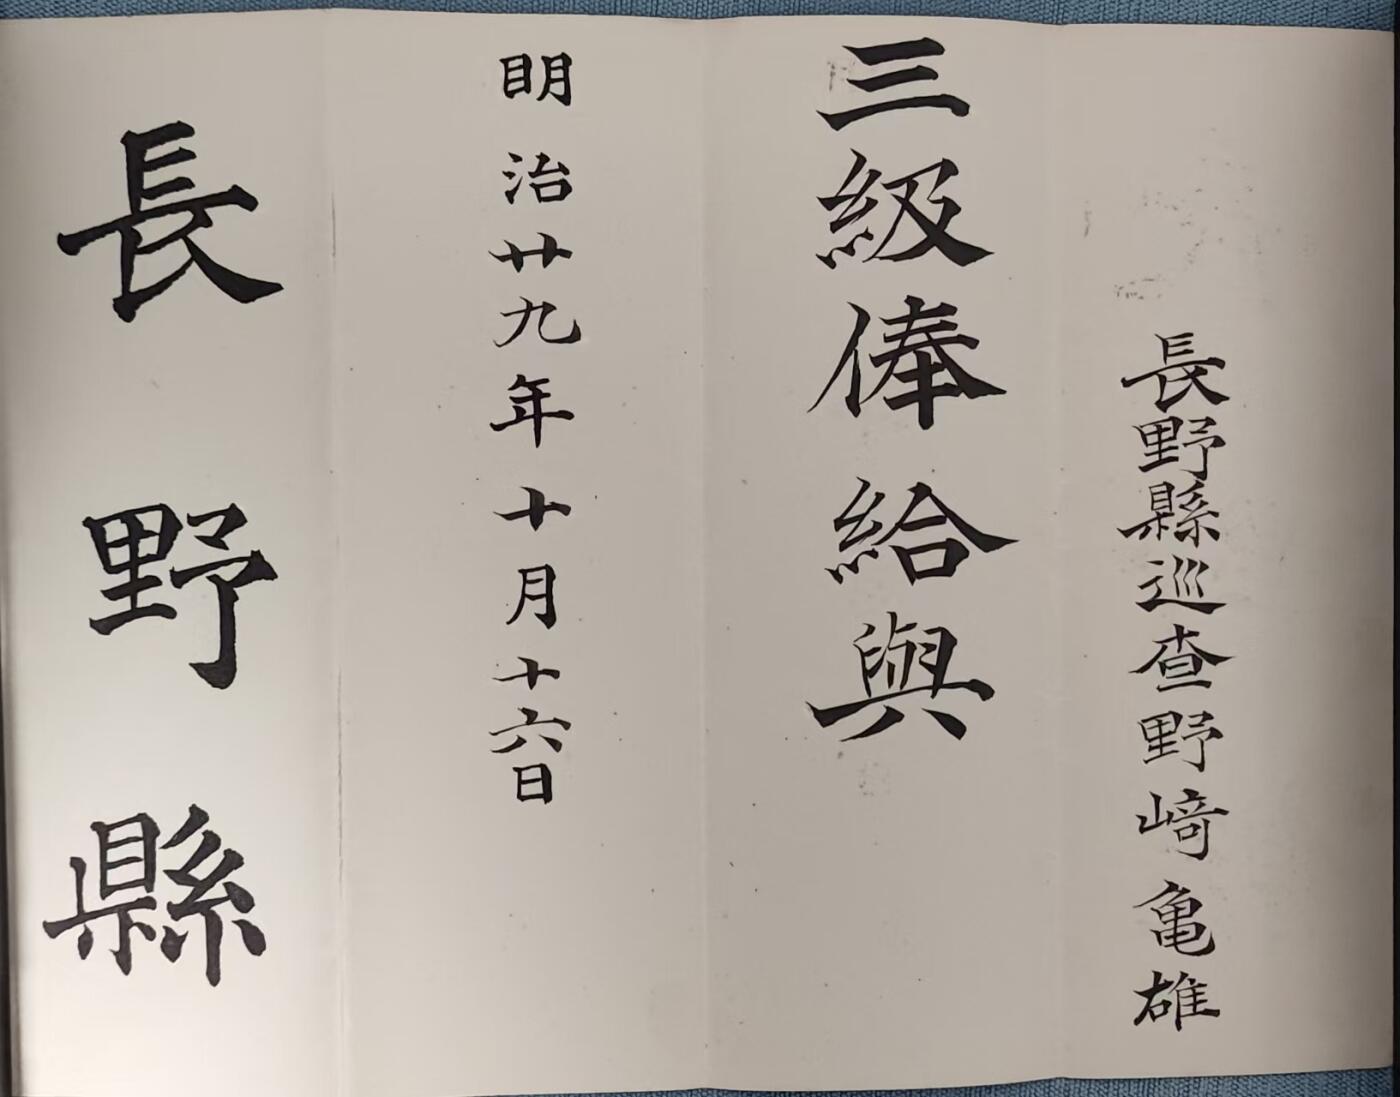 長野縣巡査野﨑亀雄
三級俸給與
明治廿九年十月十六日
長野縣